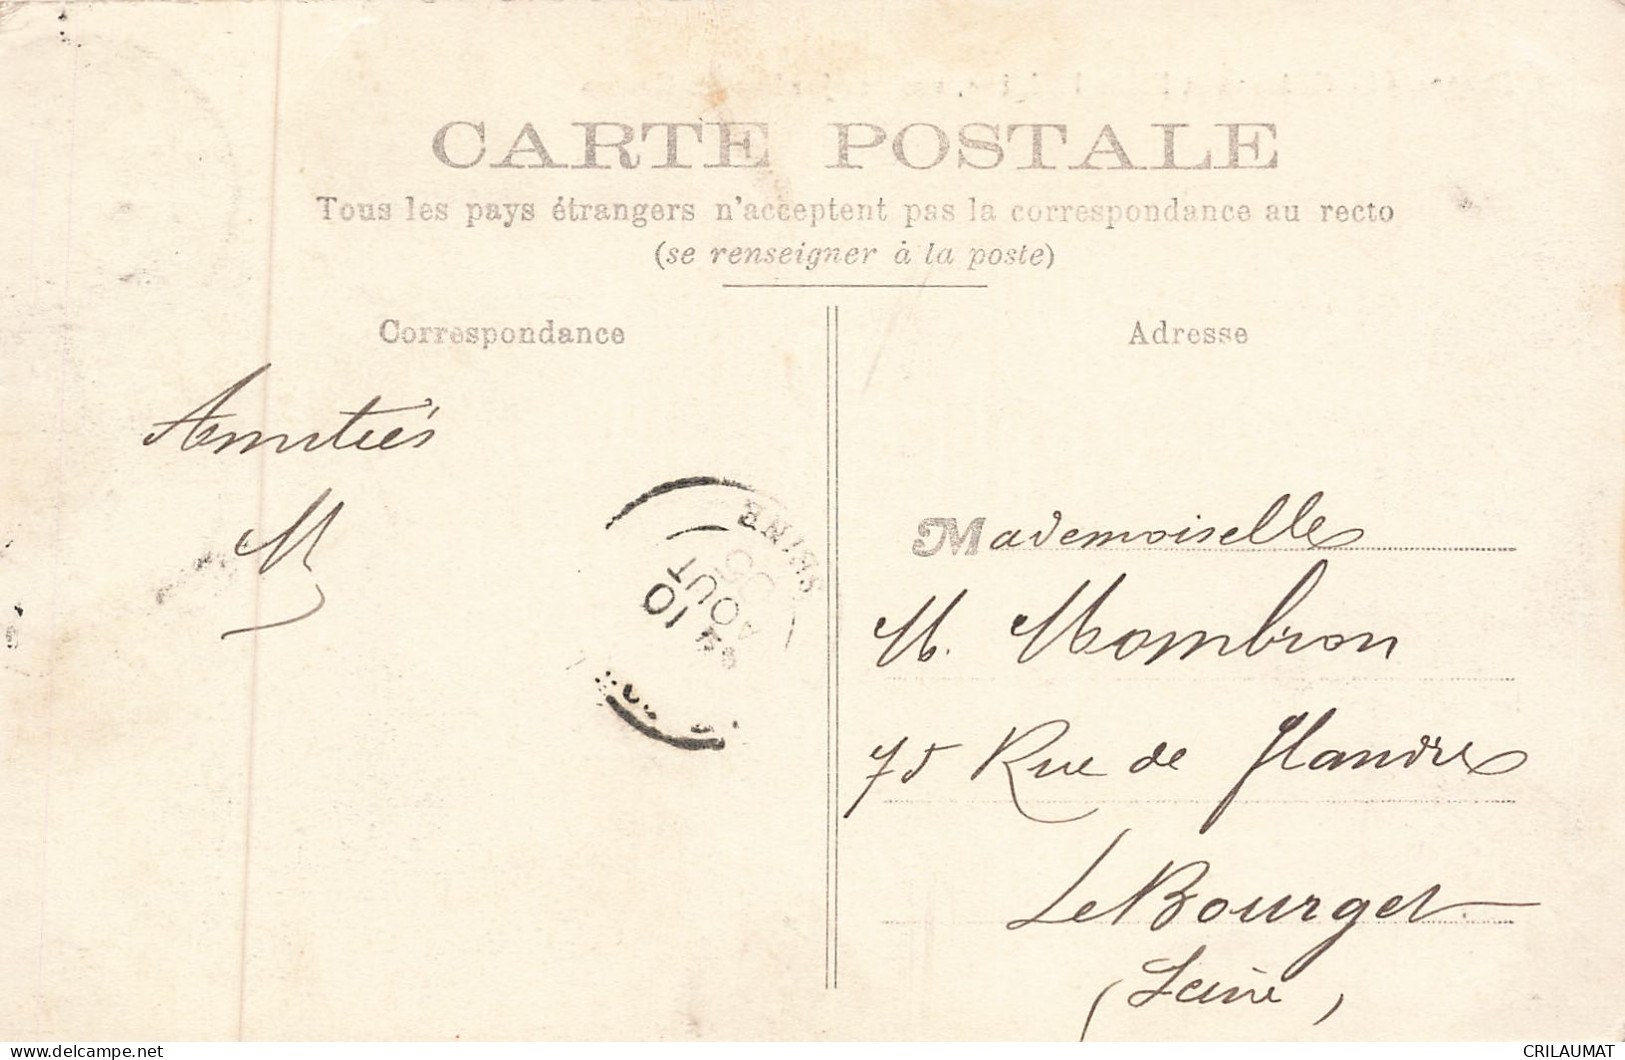 CARTE POSTALE
Tous les pays étrangers n'acceptent pas la correspondance au recto
(se renseigner à la poste)
Correspondance
Adresse
Amitiés
M
Mademoiselle
M. Mombron
75 Rue de Flandre
Le Bourget
(Seine)
SEINE
10
AOUT
CRILAUMAT